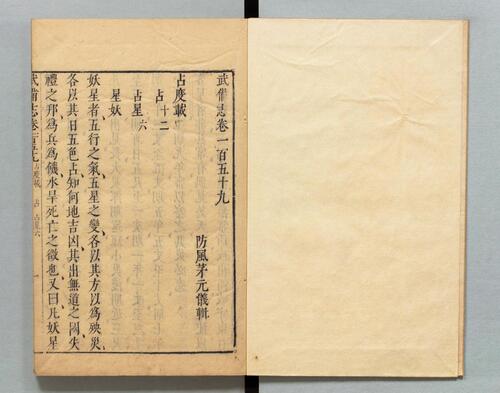 武備志卷一百五十九
防風茅元儀輯
占度載
占十二
占星六
星妖
妖星者五行之氣五星之變各以其方以爲殃災
各以其日五色占知何地吉凶其出無道之國失
禮之邦爲兵爲饑水旱死亡之徵也又曰凡妖星
武備志卷百五九 占度載 占 占星六 一